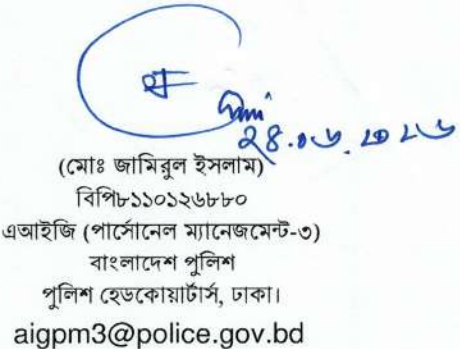 ২৪.০৬.২০২৬
(মোঃ জামিরুল ইসলাম)
বিপি৮১১০১২৬৮৮০
এআইজি (পার্সোনেল ম্যানেজমেন্ট-৩)
বাংলাদেশ পুলিশ
পুলিশ হেডকোয়ার্টার্স, ঢাকা।
aigpm3@police.gov.bd